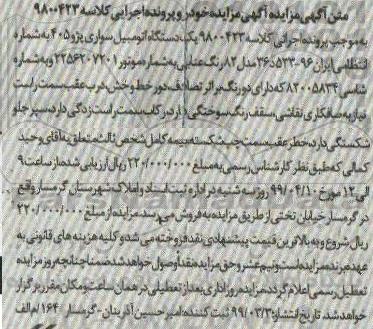 متن آگهی مزایده آگهی مزایده خودرو پرونده اجرایی کلاسه ۹۸۰۰۴۲۳
به موجب پرونده اجرائی کلاسه ۹۸۰۰۴۲۳ یک دستگاه اتومبیل سواری پژو ۴۰۵ به شماره
انتظامی ایران ۹۶-۵۳۳د۲۶ مدل ۸۲ رنگ عنابی به شماره موتور ۲۲۵۶۲۰۷۲۰۱ و به شماره
شاسی ۸۲۰۰۵۸۳۴ که دارای دو رنگ بر اثر تصادف دور خط و خش درب عقب سمت راست
نیاز به صافکاری نقاشی، سقف رنگ سوختگی دارد رکاب سمت راست زدگی دارد، سپر جلو
شکستگی دارد، خطر عقب سمت چپ شکسته بیمه کامل شخص ثالث متعلق به آقای وحید
کمالی که طبق نظر کارشناس رسمی به مبلغ ۲۲۰/۰۰۰/۰۰۰ ریال ارزیابی شده، از ساعت ۹
الی ۱۲ مورخ ۹۹/۰۴/۱۰ روز سه شنبه در اداره ثبت اسناد و املاک شهرستان گرمسار واقع
در گرمسار خیابان تختی از طریق مزایده به فروش می رسد. مزایده از مبلغ ۲۲۰/۰۰۰/۰۰۰
ریال شروع و به بالاترین قیمت پیشنهادی نقد فروخته می شد و کلیه هزینه های قانونی به
عهده برنده مزایده است و نیم عشر و حق مزایده نقدا وصول خواهد شد ضمنا چنانچه روز مزایده
تعطیل رسمی اعلام گردد مزایده روز اداری بعد از تعطیلی در همان ساعت و مکان مقرر برگزار
خواهد شد. تاریخ انتشار: ۹۹/۰۳/۳ ثبت کننده: امیرحسین آذریان - گرمسار ۱۶۴/م الف